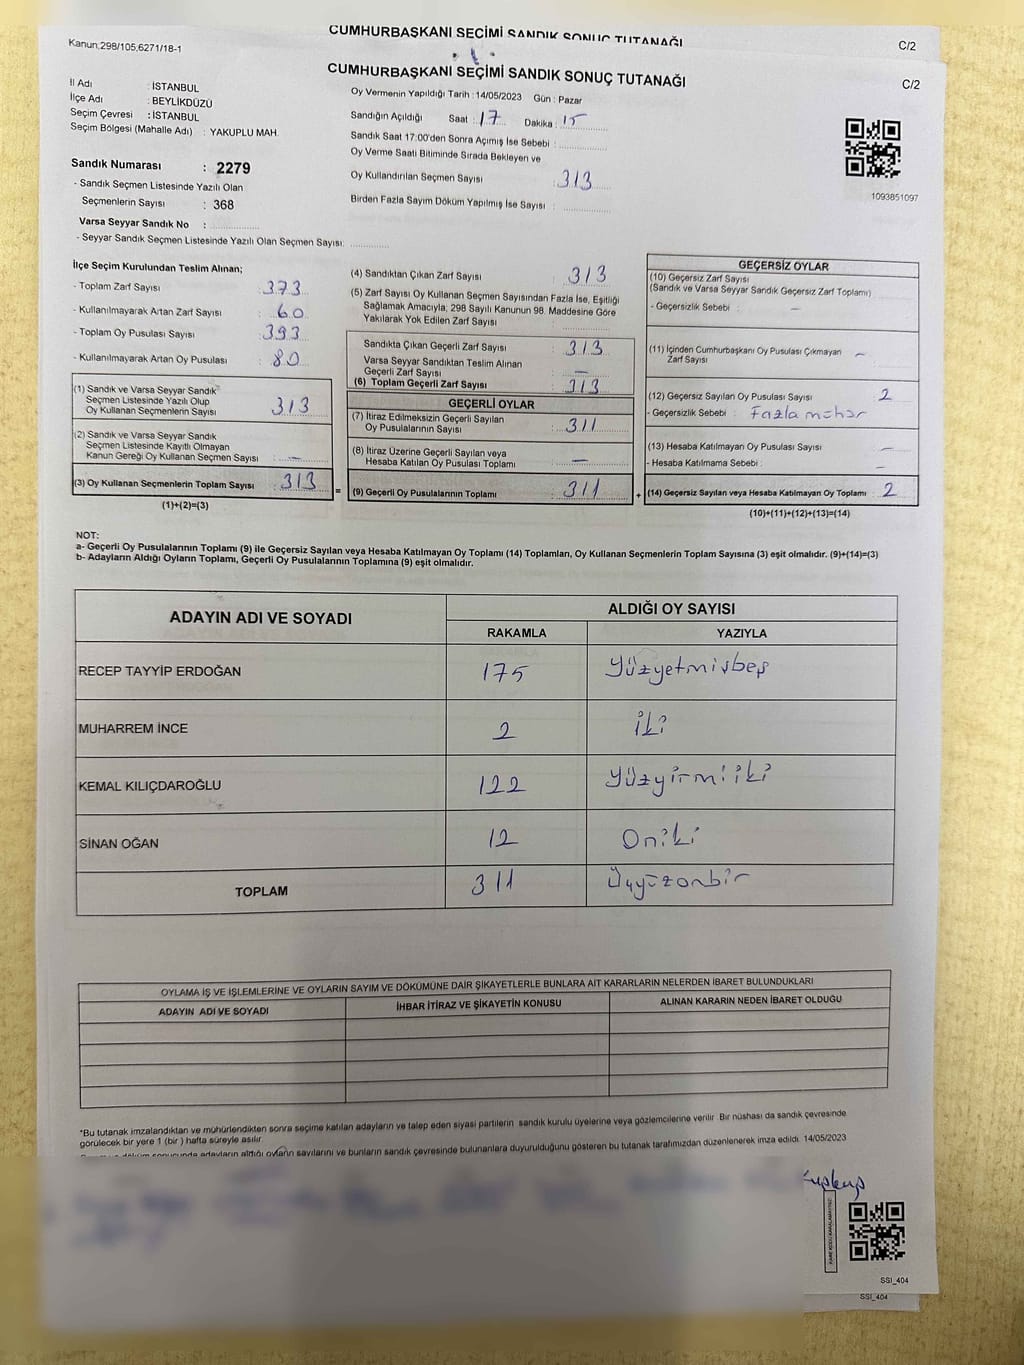 CUMHURBAŞKANI SEÇİMİ SANDIK SONUÇ TUTANAĞI
Kanun;298/105,6271/18-1
C/2
CUMHURBAŞKANI SEÇİMİ SANDIK SONUÇ TUTANAĞI
C/2
İl Adı : İSTANBUL
İlçe Adı : BEYLİKDÜZÜ
Seçim Çevresi : İSTANBUL
Seçim Bölgesi (Mahalle Adı) : YAKUPLU MAH.
Sandık Numarası : 2279
- Sandık Seçmen Listesinde Yazılı Olan
Seçmenlerin Sayısı : 368
Varsa Seyyar Sandık No :
- Seyyar Sandık Seçmen Listesinde Yazılı Olan Seçmen Sayısı:
Oy Vermenin Yapıldığı Tarih : 14/05/2023 Gün : Pazar
Sandığın Açıldığı Saat : 17 Dakika : 15
Sandık Saat 17:00'den Sonra Açımış İse Sebebi :
Oy Verme Saati Bitiminde Sırada Bekleyen ve
Oy Kullandırılan Seçmen Sayısı : 313
Birden Fazla Sayım Döküm Yapılmış İse Sayısı :
1093851097
İlçe Seçim Kurulundan Teslim Alınan;
- Toplam Zarf Sayısı : 373
- Kullanılmayarak Artan Zarf Sayısı : 60
- Toplam Oy Pusulası Sayısı : 393
- Kullanılmayarak Artan Oy Pusulası : 80
(1) Sandık ve Varsa Seyyar Sandık
Seçmen Listesinde Yazılı Olup
Oy Kullanan Seçmenlerin Sayısı : 313
(2) Sandık ve Varsa Seyyar Sandık
Seçmen Listesinde Kayıtlı Olmayan
Kanun Gereği Oy Kullanan Seçmen Sayısı : —
(3) Oy Kullanan Seçmenlerin Toplam Sayısı : 313
(1)+(2)=(3)
=
(4) Sandıktan Çıkan Zarf Sayısı : 313
(5) Zarf Sayısı Oy Kullanan Seçmen Sayısından Fazla İse, Eşitliği
Sağlamak Amacıyla, 298 Sayılı Kanunun 98. Maddesine Göre
Yakılarak Yok Edilen Zarf Sayısı :
Sandıkta Çıkan Geçerli Zarf Sayısı : 313
Varsa Seyyar Sandıktan Teslim Alınan
Geçerli Zarf Sayısı : —
(6) Toplam Geçerli Zarf Sayısı : 313
GEÇERLİ OYLAR
(7) İtiraz Edilmeksizin Geçerli Sayılan
Oy Pusulalarının Sayısı : 311
(8) İtiraz Üzerine Geçerli Sayılan veya
Hesaba Katılan Oy Pusulası Toplamı : —
(9) Geçerli Oy Pusulalarının Toplamı : 311
+
GEÇERSİZ OYLAR
(10) Geçersiz Zarf Sayısı
(Sandık ve Varsa Seyyar Sandık Geçersiz Zarf Toplamı)
- Geçersizlik Sebebi : —
(11) İçinden Cumhurbaşkanı Oy Pusulası Çıkmayan : —
Zarf Sayısı
(12) Geçersiz Sayılan Oy Pusulası Sayısı : 2
- Geçersizlik Sebebi : Fazla mühür
(13) Hesaba Katılmayan Oy Pusulası Sayısı : —
- Hesaba Katılmama Sebebi : —
(14) Geçersiz Sayılan veya Hesaba Katılmayan Oy Toplamı : 2
(10)+(11)+(12)+(13)=(14)
NOT:
a- Geçerli Oy Pusulalarının Toplamı (9) ile Geçersiz Sayılan veya Hesaba Katılmayan Oy Toplamı (14) Toplamları, Oy Kullanan Seçmenlerin Toplam Sayısına (3) eşit olmalıdır. (9)+(14)=(3)
b- Adayların Aldığı Oyların Toplamı, Geçerli Oy Pusulalarının Toplamına (9) eşit olmalıdır.
ADAYIN ADI VE SOYADI
ALDIĞI OY SAYISI
RAKAMLA YAZIYLA
RECEP TAYYİP ERDOĞAN 175 Yüzyetmişbeş
MUHARREM İNCE 2 İki
KEMAL KILIÇDAROĞLU 122 Yüzyirmiiki
SİNAN OĞAN 12 Oniki
TOPLAM 311 Üçyüzonbir
OYLAMA İŞ VE İŞLEMLERİNE VE OYLARIN SAYIM VE DÖKÜMÜNE DAİR ŞİKAYETLERLE BUNLARA AİT KARARLARIN NELERDEN İBARET BULUNDUKLARI
ADAYIN ADI VE SOYADI İHBAR İTİRAZ VE ŞİKAYETİN KONUSU ALINAN KARARIN NEDEN İBARET OLDUĞU
*Bu tutanak imzalandıktan ve mühürlendikten sonra seçime katılan adayların ve talep eden siyasi partilerin sandık kurulu üyelerine veya gözlemcilerine verilir. Bir nüshası da sandık çevresinde
görülecek bir yere 1 (bir ) hafta süreyle asılır.
sonucunda adayların aldığı oyların sayılarını ve bunların sandık çevresinde bulunanlara duyurulduğunu gösteren bu tutanak tarafımızdan düzenlenerek imza edildi. 14/05/2023
SSI_404
SSI_404